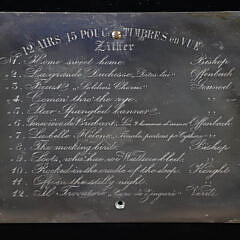 12 AIRS 15 POUCES TIMBRES en VUE
Zither
No 1. Home sweet home. Bishop
" 2. La grande Duchesse, Dites lui Offenbach
" 3. Faust, Soldiers Chorus Gounod
" 4. Comin' thro the rye.
" 5. Star Spangled banner.
" 6. Geneviève de Brabant. Les 2 hommes d'armes Offenbach
" 7. La belle Hélène.
" 8. The mocking bird. Bishop
" 9. Scots, wha hae wi Wallace bled.
" 10. Rocked in the cradle of the deep. Knight
" 11. Oft in the stilly night.
" 12. Il Trovatore. Verdi